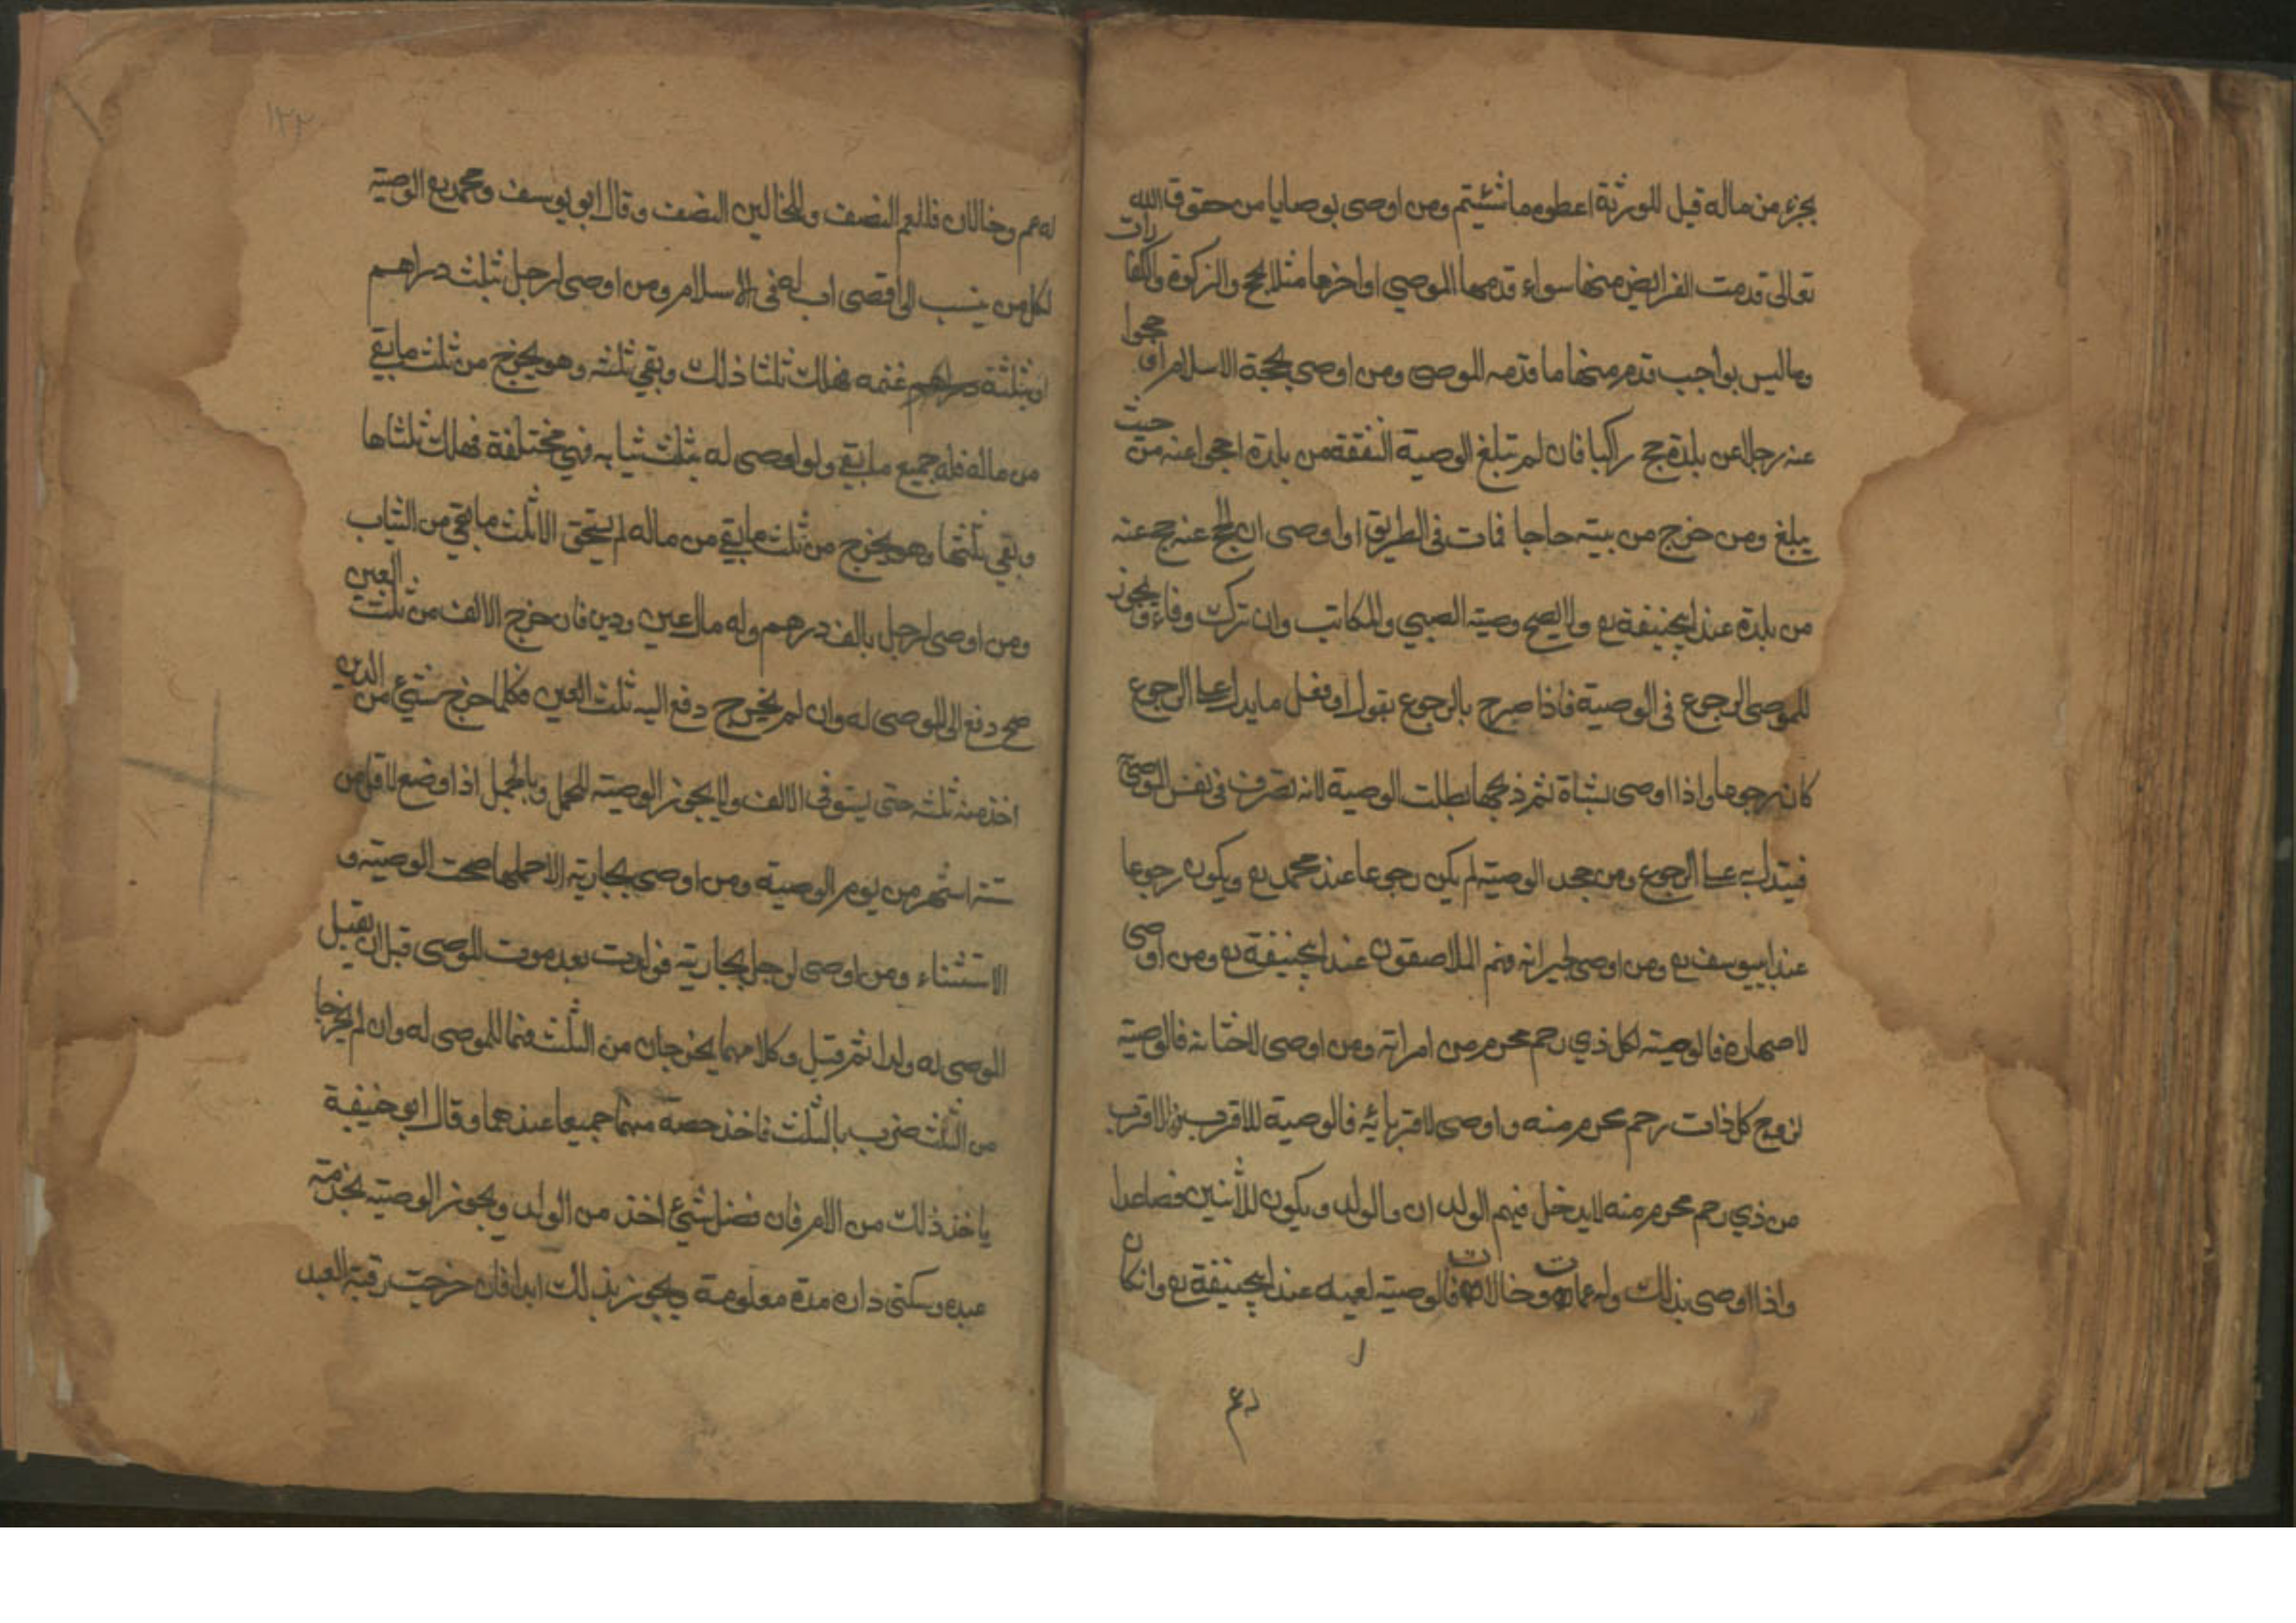 بجزء من ماله قيل للورثة اعطوه ما شئتم ومن اوصى بوصايا من حقوق الله
تعالى قدمت الفرائض منها سواء قدمها الموصي او اخرها مثل الحج والزكوة والكفارات
وما ليس بواجب قدم منها ما قدمه الموصي ومن اوصى بحجة الاسلام احجوا
عنه رجلا عن بلدة حج راكبا فان لم تبلغ الوصية النفقة من بلدة احجوا عنه من حيث
يبلغ ومن خرج من بيته حاجا فمات في الطريق واوصى ان يحج عنه حج عنه
من بلدة عند ابيحنيفة رع ولا يصح وصية الصبي والمكاتب وان ترك وفاء ويجوز
للموصي الرجوع في الوصية فاذا صرح بالرجوع بقول او فعل ما يدل على الرجوع
كان رجوعا واذا اوصى بشاة ثم ذبحها بطلت الوصية لانه تصرف في نفس الموصى
فيتدل به على الرجوع ومن جحد الوصية لم يكن رجوعا عند محمد رع ويكون رجوعا
عند ابييوسف رع ومن اوصى لجيرانه فهم الملاصقون عند ابيحنيفة رع ومن اوصى
لاصهاره فالوصية لكل ذي رحم محرم من امراته ومن اوصى لاختانه فالوصية
لزوج كل ذات رحم محرم منه واوصى لاقربائه فالوصية للاقرب فالاقرب
من ذي رحم محرم منه لا يدخل فيهم الولدان والولد ويكون للاثنين فصاعدا
واذا اوصى بذلك وله عمان وخالان فالوصية لعميه عند ابيحنيفة رع وان كان
رع
١٢٢
له عم وخالان فللعم النصف وللخالين النصف وقال ابو يوسف ومحمد رع الوصية
لكل من ينسب الى اقصى اب له في الاسلام ومن اوصى لرجل بثلث دراهم
او بثلثة غنمه فهلك ثلثا ذلك وبقي ثلثه وهو يخرج من ثلث ما بقي
من ماله فله جميع ما بقي ولو اوصى له بثلث ثيابه فهي مختلفة فهلك ثلثاها
وبقي ثلثها وهو يخرج من ثلث ما بقي من ماله لم يستحق الا ثلث ما بقي من الثياب
ومن اوصى لرجل بالف درهم وله مال عين ودين فان خرج الالف من ثلث العين
صح دفع الى الموصى له وان لم يخرج دفع اليه ثلث العين فكلما خرج شيئ من الدين
اخذ منه ثلثه حتى يستوفي الالف ولا يجوز الوصية للحمل وبالحمل اذا وضع لاقل من
ستة اشهر من يوم الوصية ومن اوصى بجارية الا حملها صحت الوصية و
الاستثناء ومن اوصى لرجل بجارية فولدت بعد موت الموصي قبل ان يقبل
الموصى له ولدا ثم قبل وكلاهما يخرجان من الثلث فهما للموصى له وان لم يخرجا
من الثلث ضرب بالثلث فاخذ حصة منهما جميعا عندهما وقال ابو حنيفة
ياخذ ذلك من الام فان فضل شيئ اخذ من الولد ويجوز الوصية بخدمة
عبده وسكنى داره مدة معلومة ويجوز بذلك ابدا فان خرجت رقبة العبد